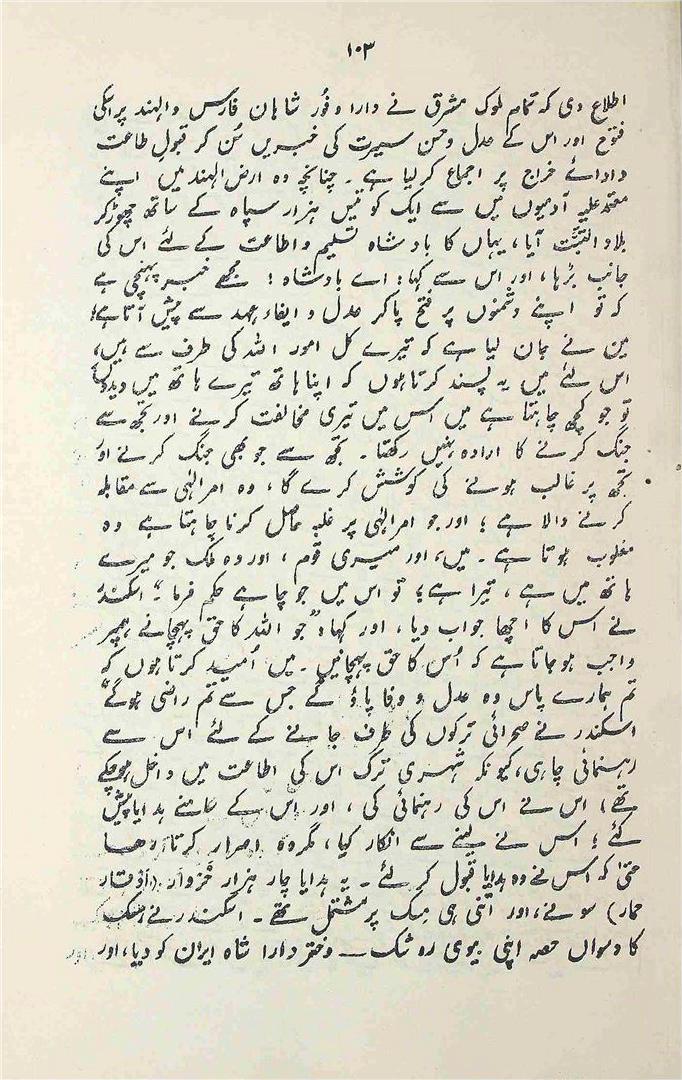 ۱۰۳
اطلاع دی کہ تمام ملوک مشرق نے دارا و فُور شاہان فارس و الہند پر اسکی
فتوح اور اس کے عدل و حسن سیرت کی خبریں سُن کر قبولِ طاعت
و ادائے خراج پر اجماع کر لیا ہے ۔ چنانچہ وہ ارض الہند میں اپنے
معتمد علیہ آدمیوں میں سے ایک کو تیس ہزار سپاہ کے ساتھ چھوڑ کر
بلاد التبّت آیا ، یہاں کا بادشاہ تسلیم و اطاعت کے لئے اس کی
جانب بڑہا ، اور اس سے کہا : اے بادشاہ ! مجھے خبر پہنچی ہے
کہ تو اپنے دشمنوں پر فتح پا کر عدل و ایفاء عہد سے پیش آتا ہے ؛
میں نے جان لیا ہے کہ تیرے کل امور اللہ کی طرف سے ہیں ،
اس لئے میں یہ پسند کرتا ہوں کہ اپنا ہاتھ تیرے ہاتھ میں دیدوں
تو جو کچھ چاہتا ہے میں اس میں تیری مخالفت کرنے اور تجھ سے
جنگ کرنے کا ارادہ نہیں رکھتا ۔ تجھ سے جو بھی جنگ کرنے اور
تجھ پر غالب ہونے کی کوشش کرے گا ، وہ امر الٰہی سے مقابلہ
کرنے والا ہے ؛ اور جو امر الٰہی پر غلبہ حاصل کرنا چاہتا ہے وہ
مغلوب ہوتا ہے ۔ میں ، اور میری قوم ، اور وہ ملک جو میرے
ہاتھ میں ہے ، تیرا ہے ؛ تو اس میں جو چاہے حکم فرما ۔" اسکندر
نے اس کا اچھا جواب دیا ، اور کہا "جو اللہ کا حق پہچانے ہمپر
واجب ہو جاتا ہے کہ اُس کا حق پہچانیں ۔ میں اُمید کرتا ہوں کہ
تم ہمارے پاس وہ عدل و وفا پاؤ گے جس سے تم راضی ہوگے"
اسکندر نے صحرائی ترکوں کی طرف جانے کے لئے اس سے
رہنمائی چاہی ، کیونکہ شہری ترک اس کی اطاعت میں داخل ہوچکے
تھے ؛ اس نے اس کی رہنمائی کی ، اور اس کے سامنے ہدایا پیش
کئے ؛ اس نے لینے سے انکار کیا ، مگر وہ اصرار کرتا رہا
حتیٰ کہ اس نے وہ ہدایا قبول کر لئے ۔ یہ ہدایا چار ہزار خَرْوار (اَوْقار
حمار) سونے ، اور اتنی ہی مِسک پر مشتمل تھے ۔ اسکندر نے مسک
کا دسواں حصہ اپنی بیوی روشنک — دختر دارا شاہ ایران کو دیا ، اور